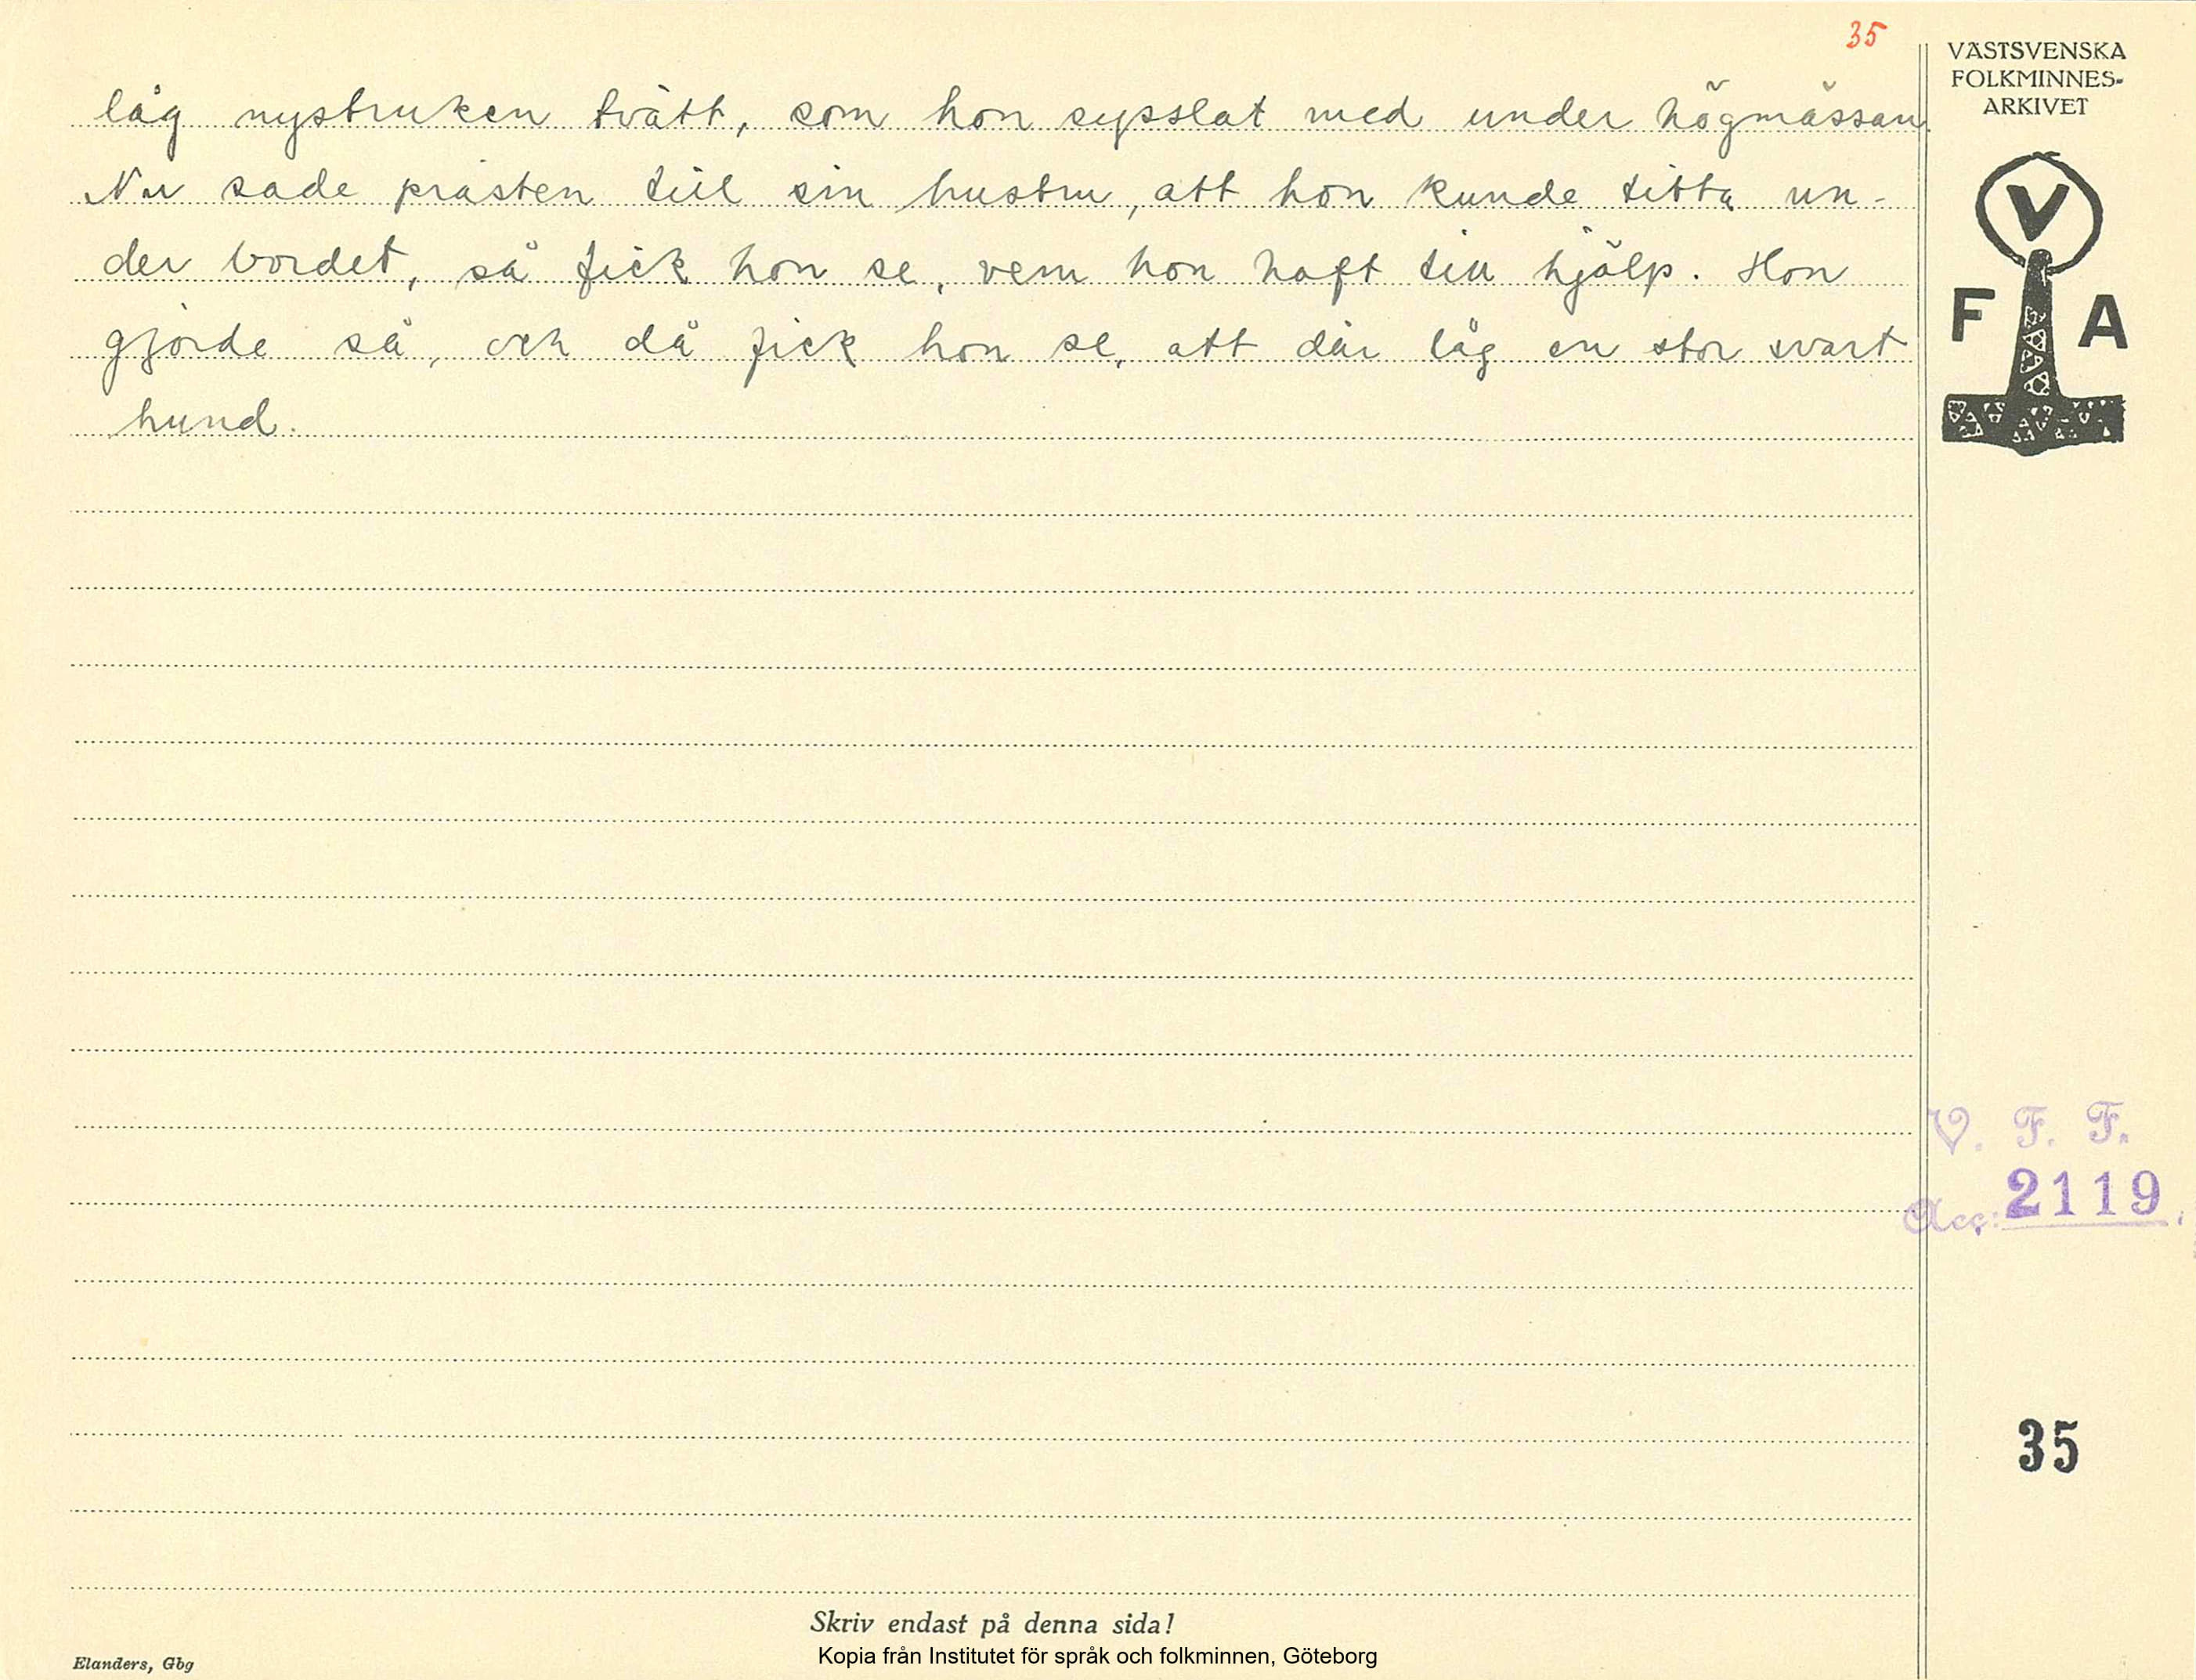 35
VÄSTSVENSKA
FOLKMINNES-
ARKIVET
V
F A
låg nystruken tvätt, som hon sysslat med under högmässan.
Nu sade prästen till sin hustru, att hon kunde titta un-
der bordet, så fick hon se, vem hon haft till hjälp. Hon
gjorde så, och då fick hon se, att där låg en stor svart
hund.
V. F. F.
Acc: 2119.
35
Skriv endast på denna sida!
Kopia från Institutet för språk och folkminnen, Göteborg
Elanders, Gbg